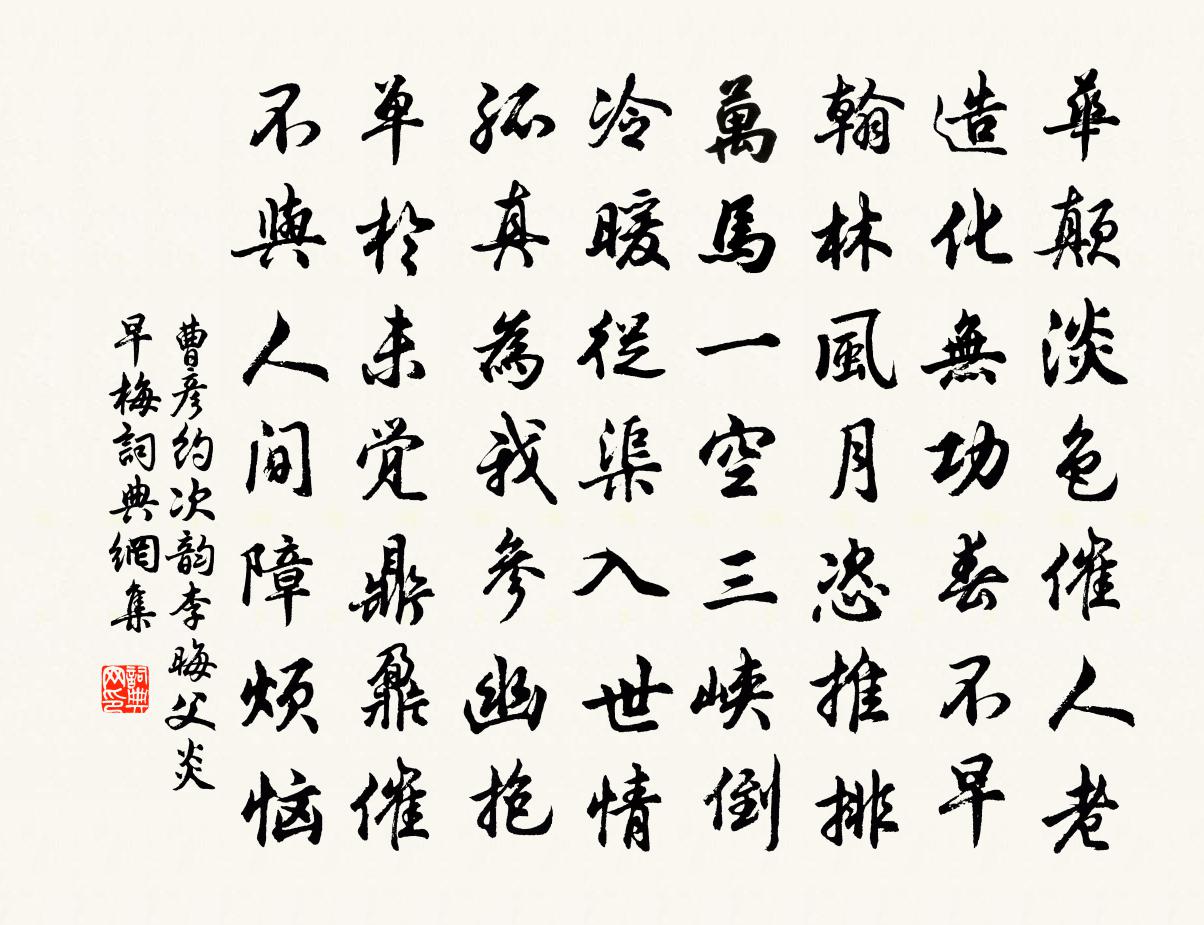 華顛淡色催人老
造化無功春不早
翰林風月恣推排
萬馬一空三峽倒
冷暖從渠入世情
孤真為我參幽抱
单於未觉鼎鼐催
不與人间障烦恼
曹彥約次韵李晦父炎
早梅詞典網集
詞典網印